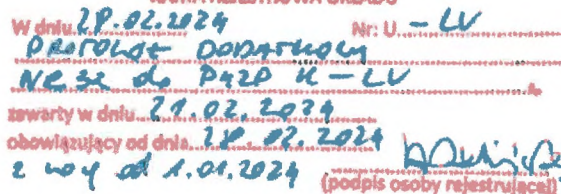 W dniu 28.02.2024 Nr: U - LV
PROTOKÓŁ DODATKOWY
NR 32 do PUZP U - LV
zawarty w dniu 21.02.2024
obowiązujący od dnia 28.02.2024
z mocą od 1.01.2024
(podpis osoby rejestrującej)